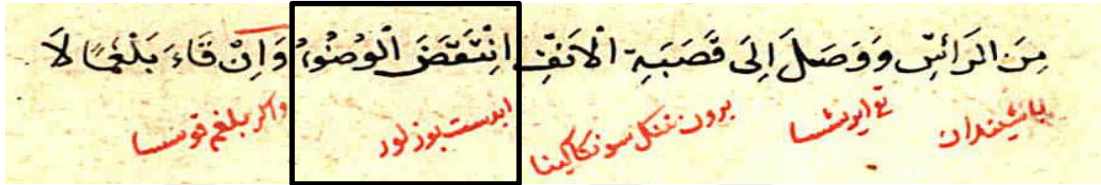 مِنَ الرَّأْسِ وَوَصَلَ اِلَى قَصَبَةِ الْاَنْفِ اِنْتَقَضَ الْوُضُوءُ وَاِنْ قَاءَ بَلْغَمًا لَا
باشيندان تا ايرشسا برون ننكل سونكاكينا ابدست بوزلور واكر بلغم قوسسا